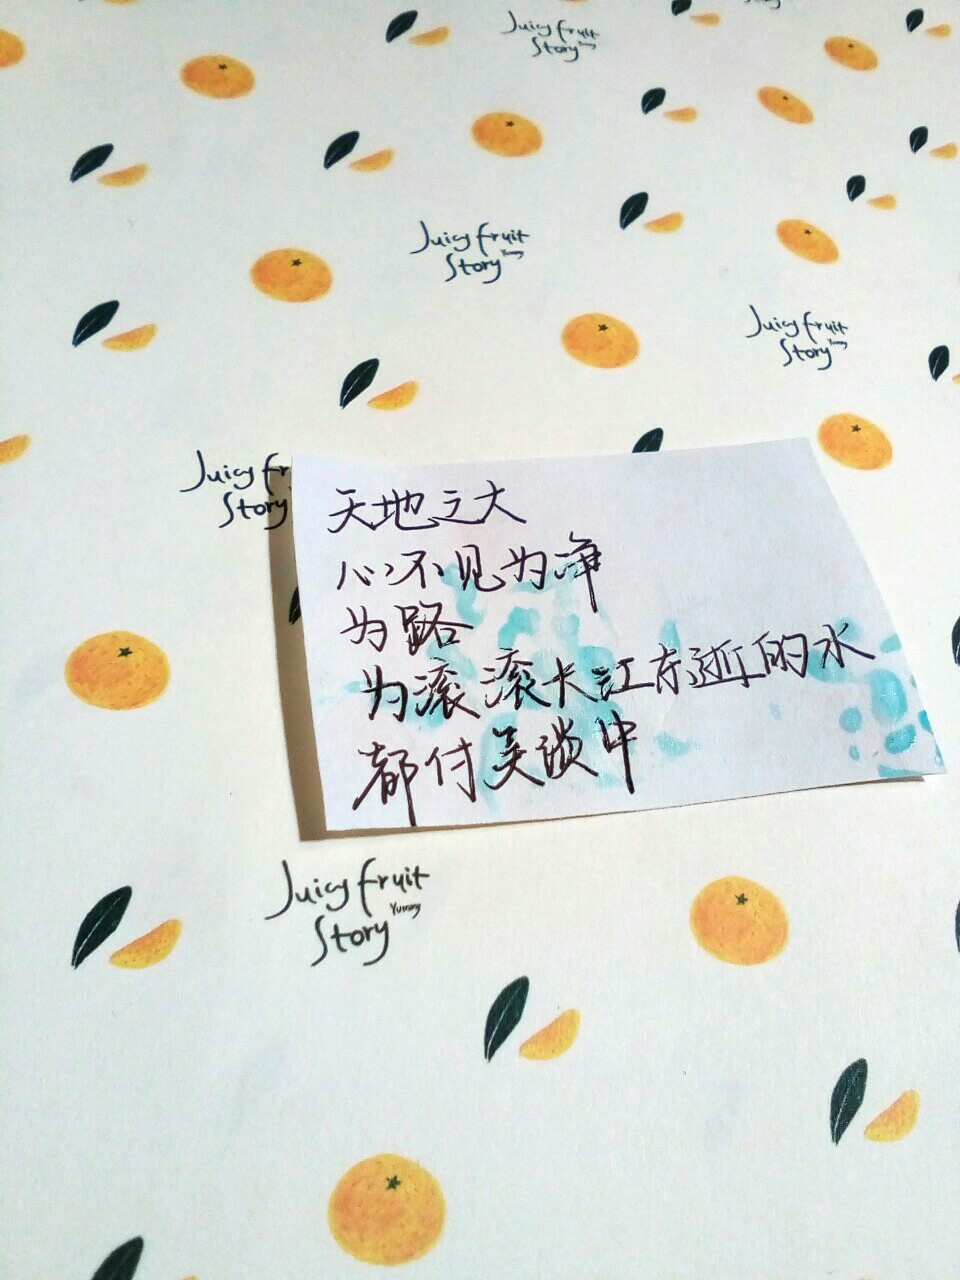 Juicy fruit
Story
Juicy fruit
Story Yummy
Juicy fruit
Story Yummy
Juicy fr
Story
天地之大
心不见为净
为路
为滚滚长江东逝的水
都付笑谈中
Juicy fruit
Yummy
Story